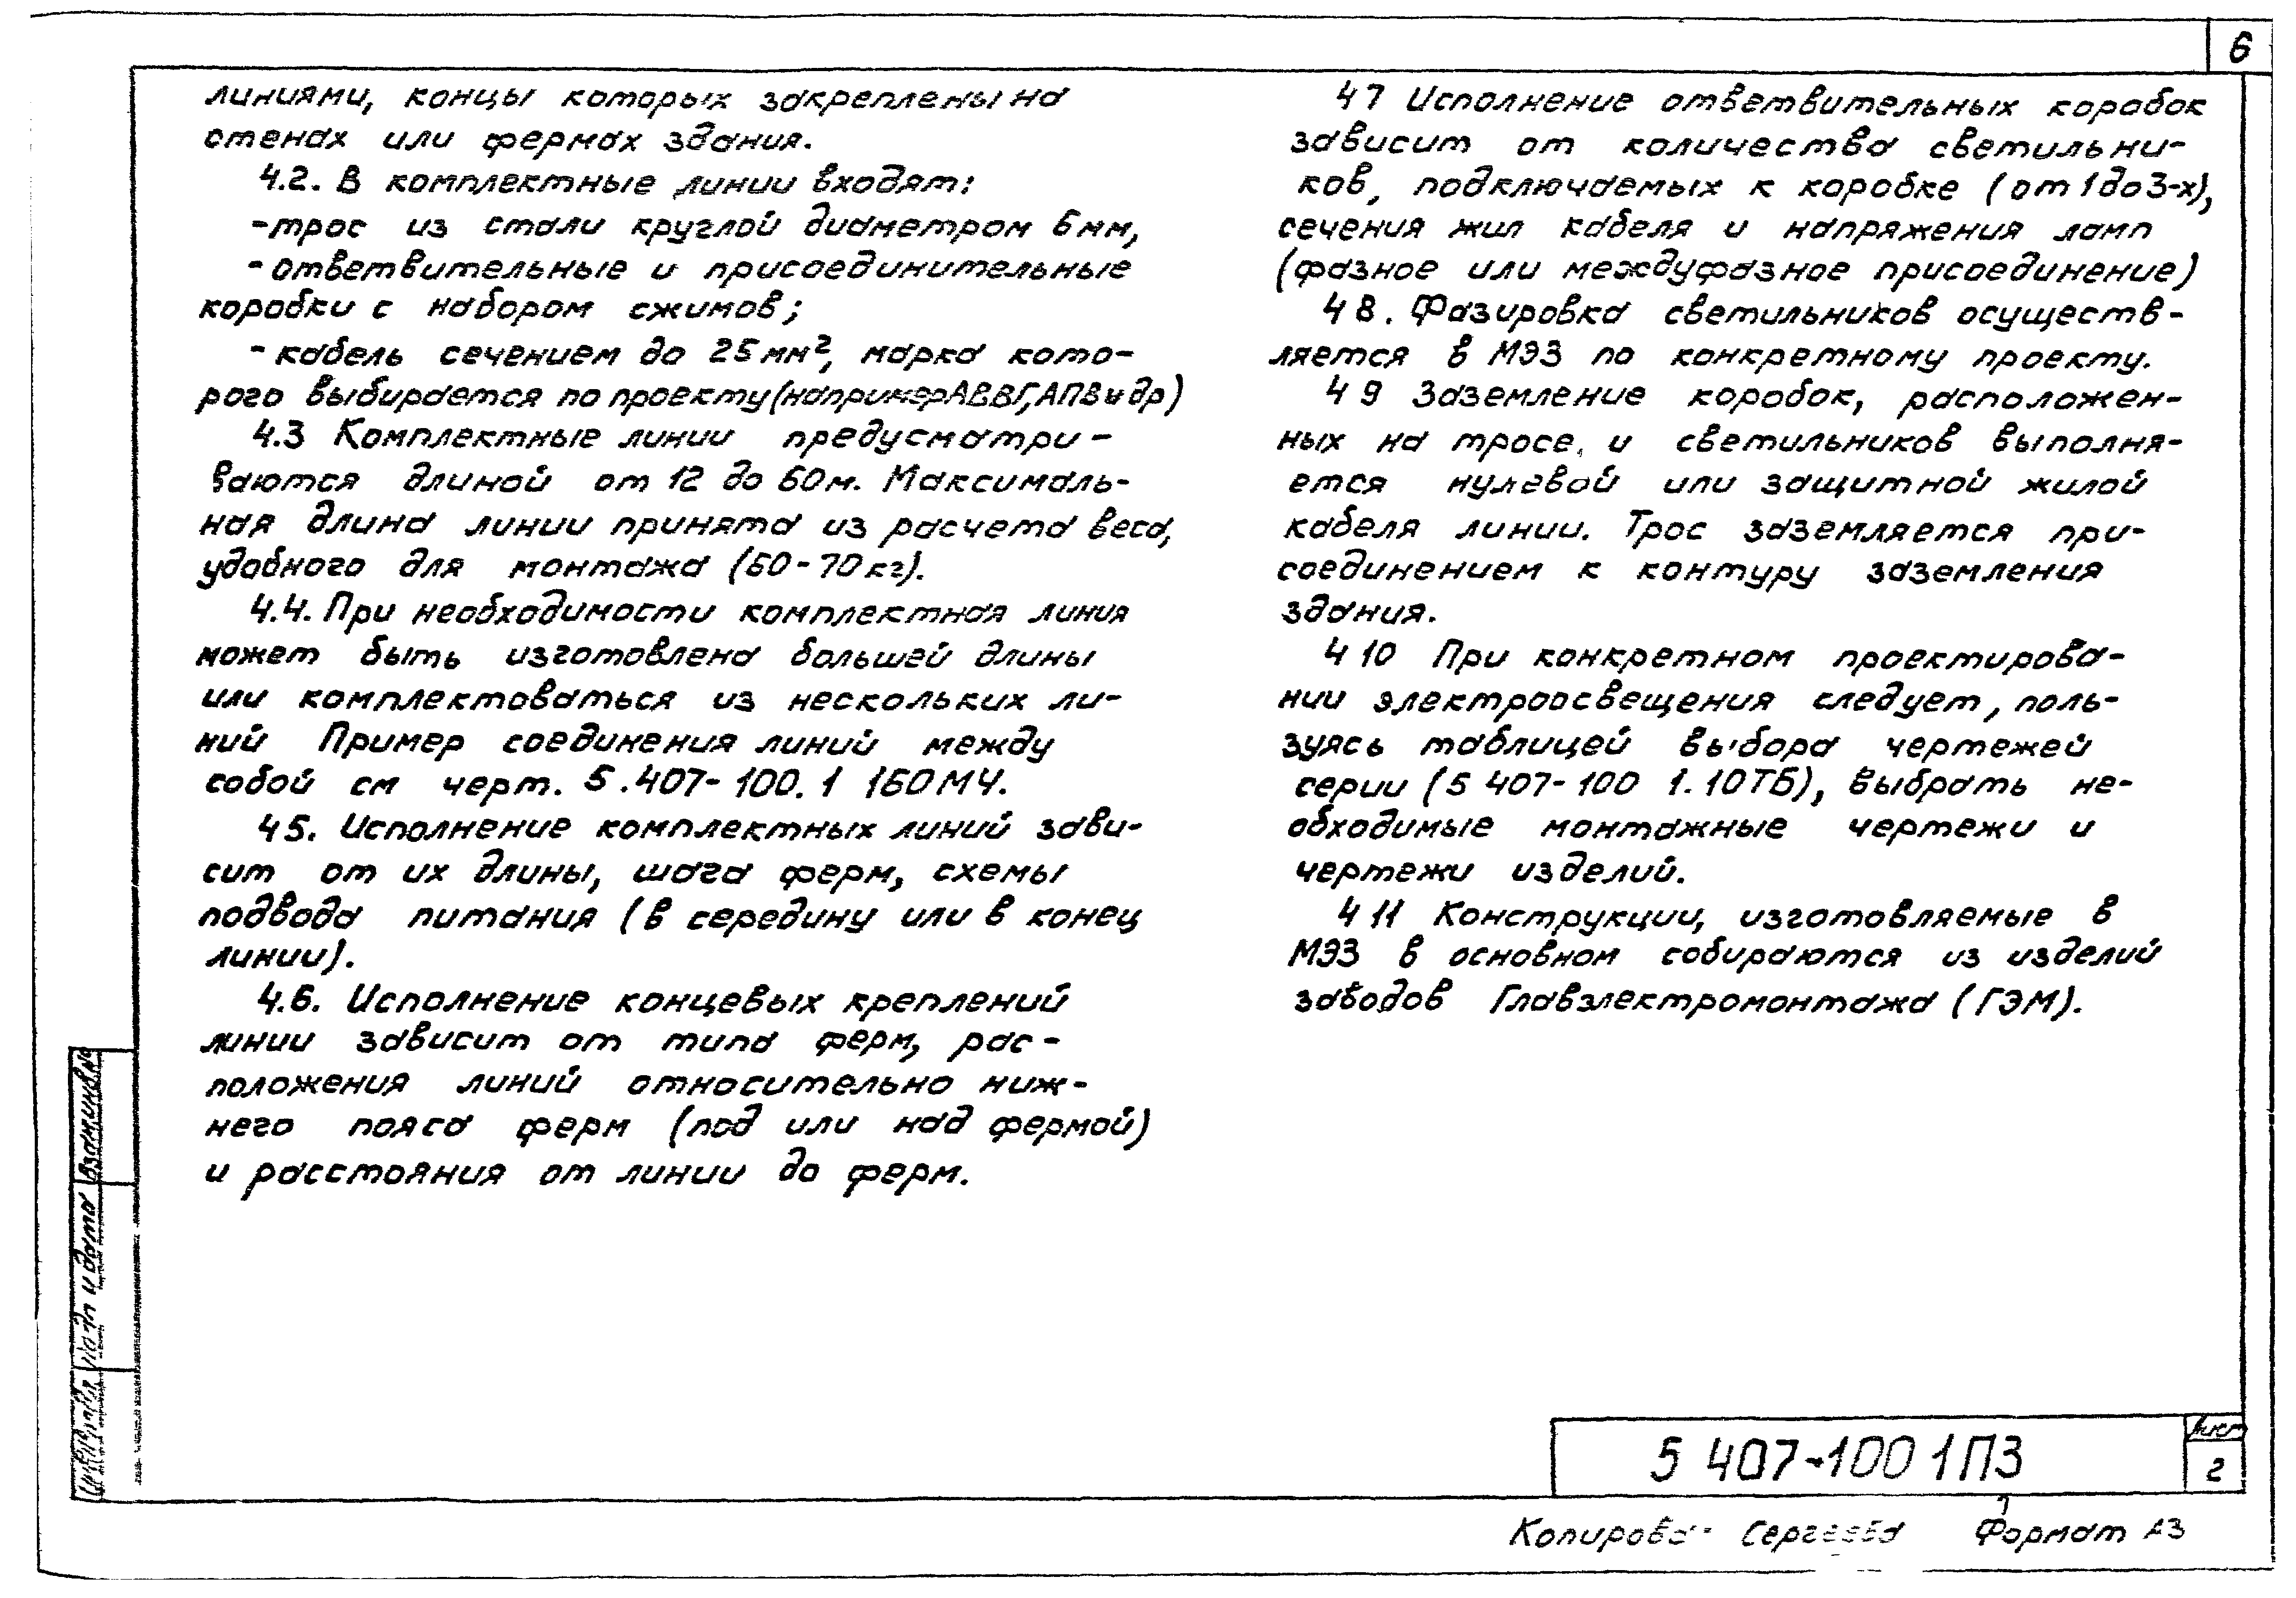 6
линиями, концы которых закреплены на
стенах или фермах здания.
4.2. В комплектные линии входят:
-трос из стали круглой диаметром 6мм,
-ответвительные и присоединительные
коробки с набором сжимов;
-кабель сечением до 25мм², марка кото-
рого выбирается по проекту(например АВВГ, АПВ и др)
4.3 Комплектные линии предусматри-
ваются длиной от 12 до 60м. Максималь-
ная длина линии принята из расчета веса,
удобного для монтажа (60-70кг).
4.4. При необходимости комплектная линия
может быть изготовлена большей длины
или комплектоваться из нескольких ли-
ний Пример соединения линий между
собой см черт. 5.407-100.1 160МЧ.
4 5. Исполнение комплектных линий зави-
сит от их длины, шага ферм, схемы
подвода питания (в середину или в конец
линии).
4.6. Исполнение концевых креплений
линии зависит от типа ферм, рас-
положения линий относительно ниж-
него пояса ферм (под или над фермой)
и расстояния от линии до ферм.
4 7 Исполнение ответвительных коробок
зависит от количества светильни-
ков, подключаемых к коробке (от 1 до 3-х),
сечения жил кабеля и напряжения ламп
(фазное или междуфазное присоединение)
4 8. Фазировка светильников осуществ-
ляется в МЭЗ по конкретному проекту.
4 9 Заземление коробок, расположен-
ных на тросе, и светильников выполня-
ется нулевой или защитной жилой
кабеля линии. Трос заземляется при-
соединением к контуру заземления
здания.
4 10 При конкретном проектирова-
нии электроосвещения следует, поль-
зуясь таблицей выбора чертежей
серии (5 407-100 1.10ТБ), выбрать не-
обходимые монтажные чертежи и
чертежи изделий.
4 11 Конструкции, изготовляемые в
МЭЗ в основном собираются из изделий
заводов Главэлектромонтажа (ГЭМ).
Взам.инв.№
Подп и дата
5 407-100 1ПЗ
Лист
2
Копирова- Сергеева Формат А3